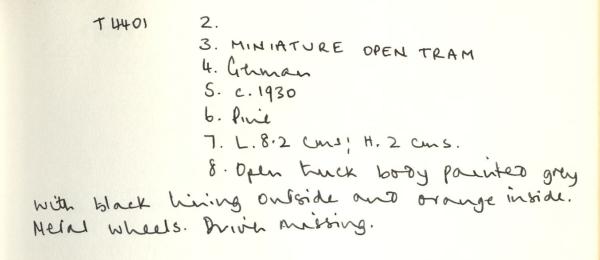 T4401 2.
3. MINIATURE OPEN TRAM
4. German
5. c. 1930
6. Pine
7. L. 8.2 cms; H. 2 cms.
8. Open truck body painted grey
with black lining outside and orange inside.
Metal wheels. Driver missing.